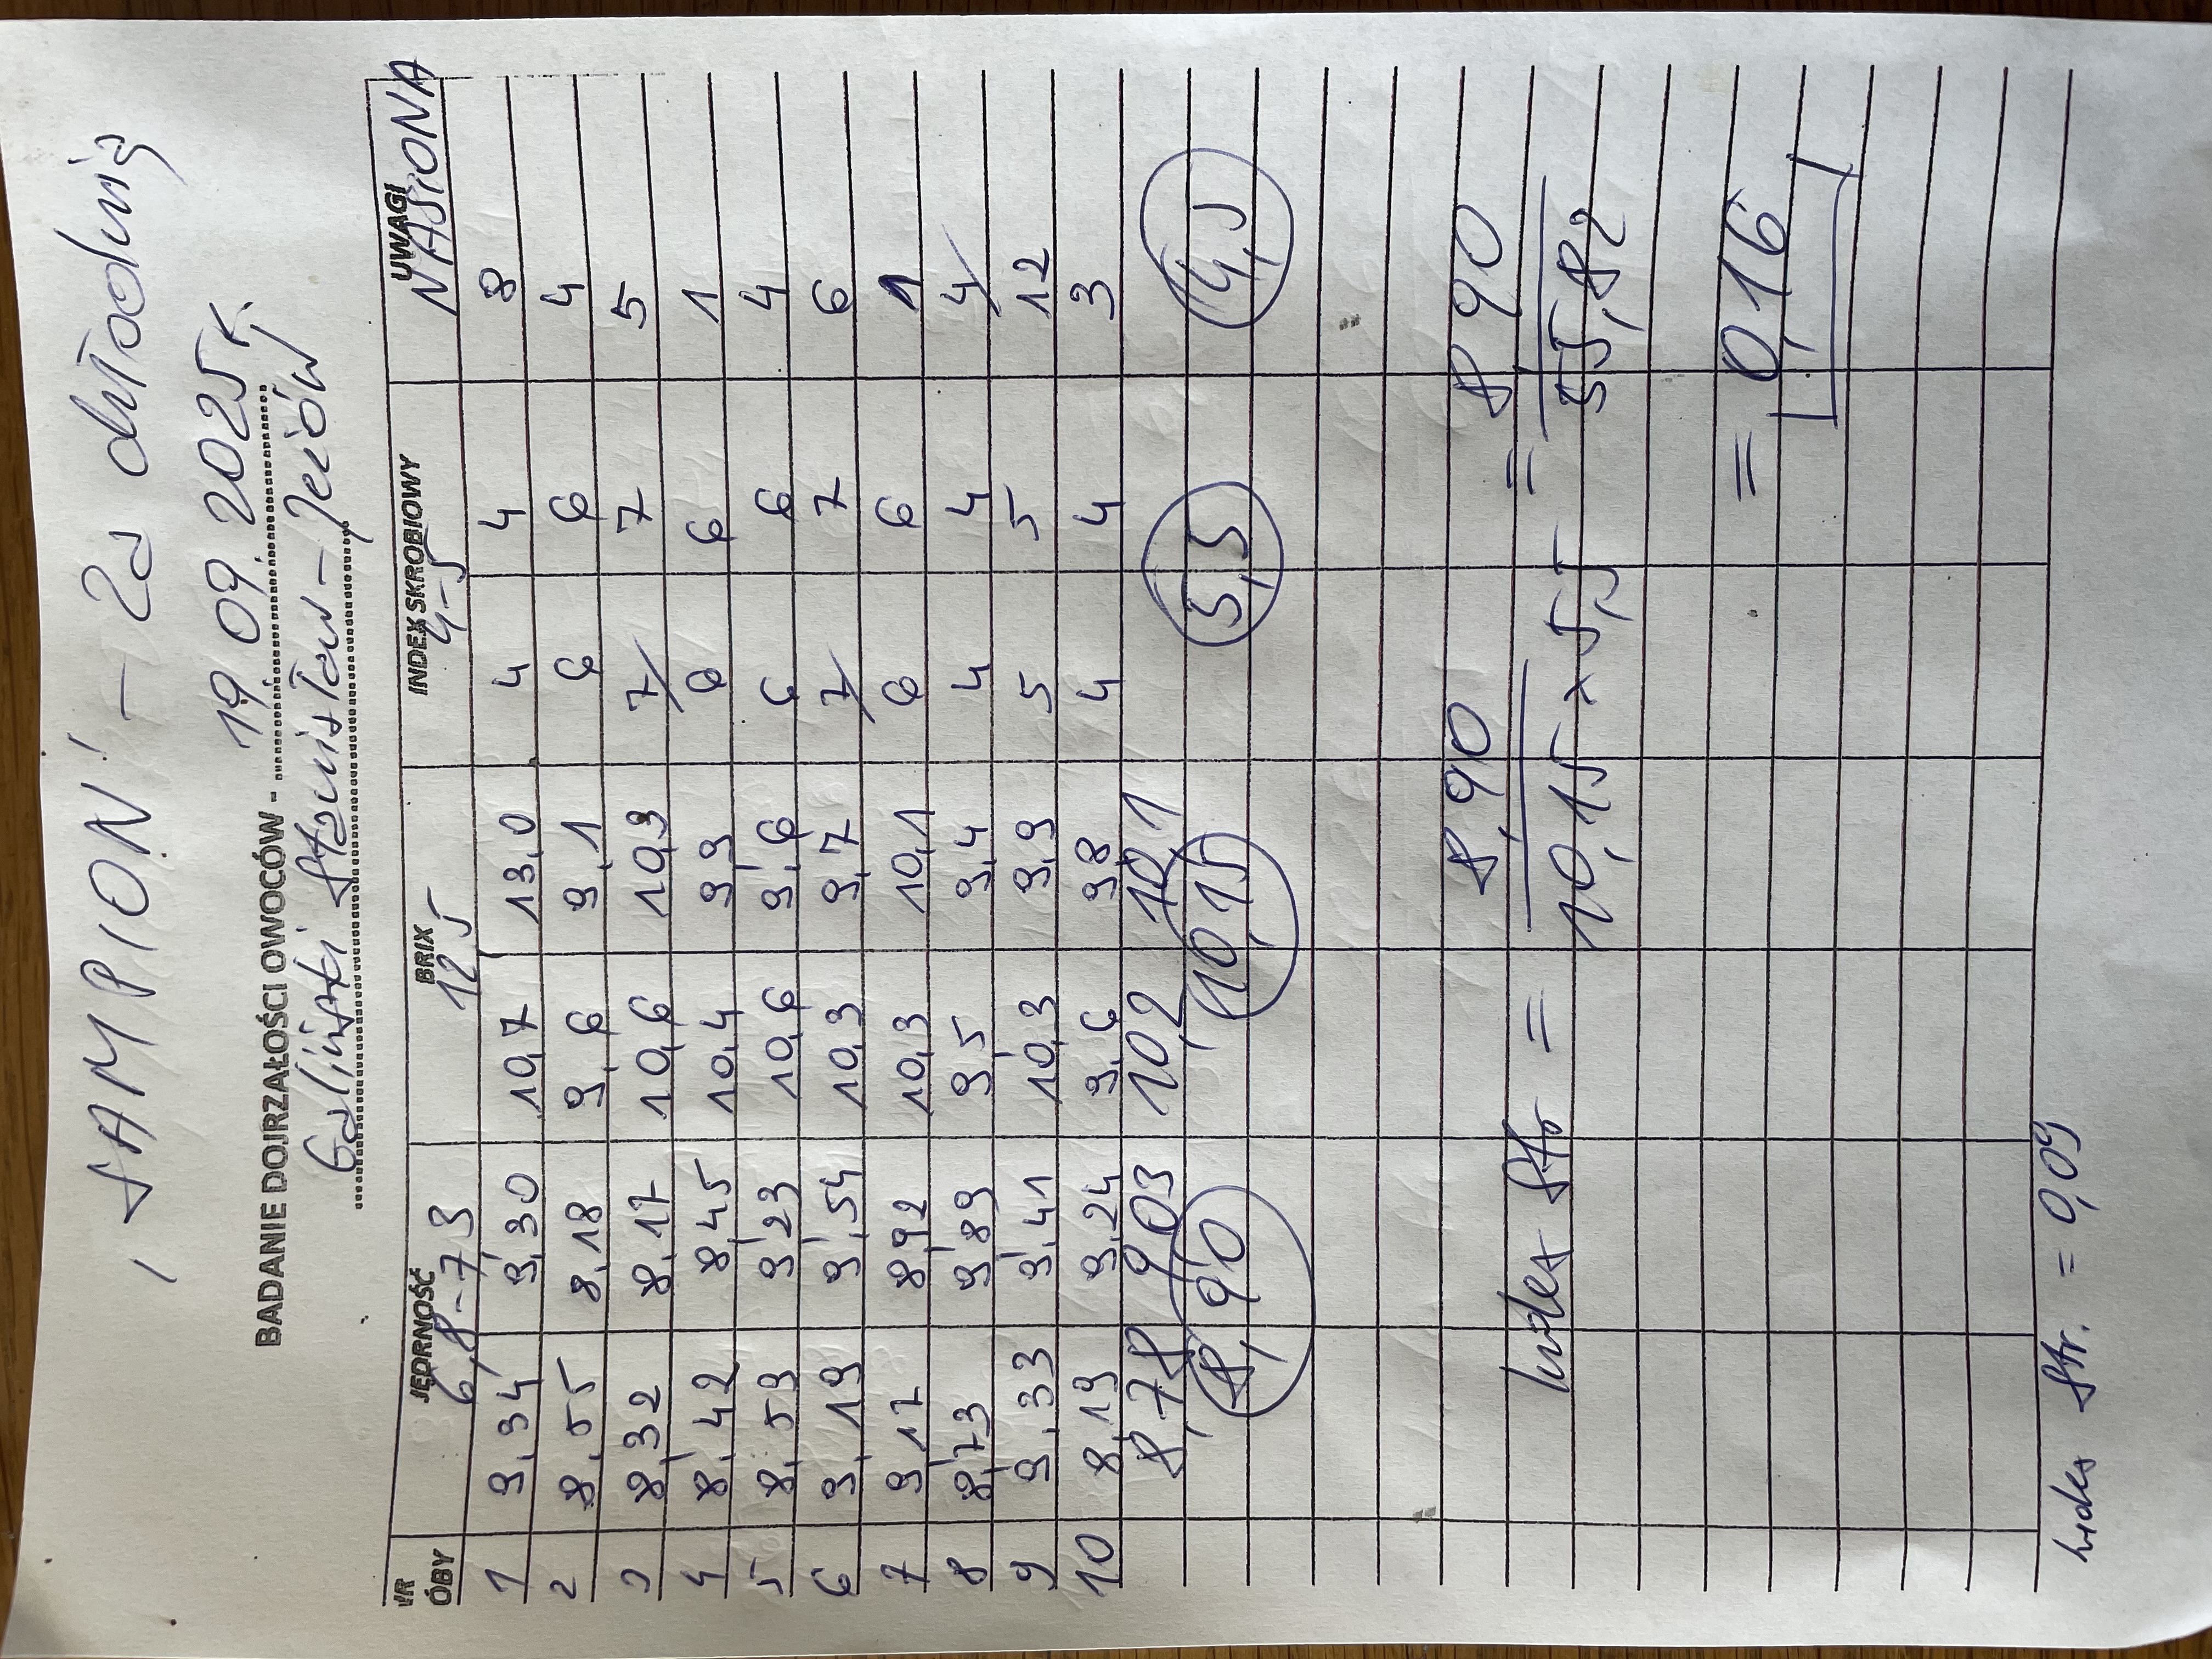 SAMPION! - za chłodnią
BADANIE DOJRZAŁOŚCI OWOCÓW - 19.09.2025r.
Galiński Stanisław - Jeżów
NR ÓBY JĘDRNOŚĆ BRIX INDEX SKROBIOWY UWAGI
6,8-7,3 12,5 4-5 NASIONA
1 9,34 9,30 10,7 13,0 4 4 8
2 8,55 8,18 9,6 9,1 6 6 4
3 8,32 8,17 10,6 10,3 7 7 5
4 8,42 8,45 10,4 9,9 6 6 1
5 8,59 9,23 10,6 9,6 6 6 4
6 9,19 9,54 10,3 9,7 7 7 6
7 9,17 8,92 10,3 10,1 6 6 1
8 8,73 9,89 9,5 9,4 4 4 4
9 9,33 9,41 10,3 9,9 5 5 12
10 8,19 9,24 9,6 9,8 4 4 3
8,78 9,03 10,2 10,1
8,90 10,15 5,5 4,5
8,90 8,90
Index Str = =
10,15 x 5,5 55,82
= 0,16
Index Str. = 0,09